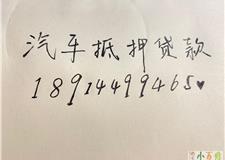 汽车抵押贷款
18914499465♥